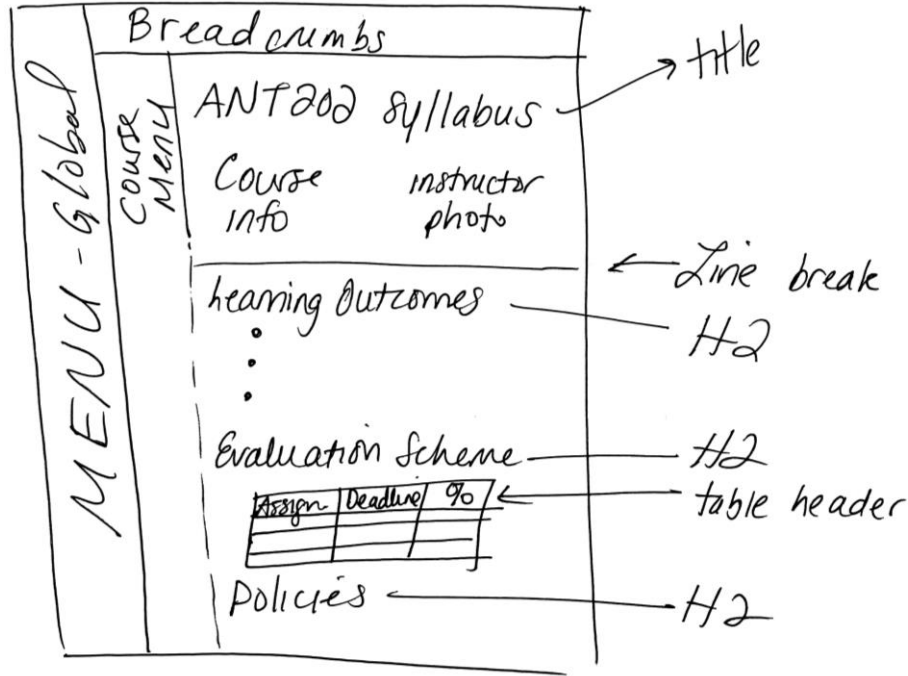 Breadcrumbs
MENU - Global
Course
Menu
ANT202 Syllabus
title
Course
info
instructor
photo
Line break
Learning Outcomes
H2
Evaluation Scheme
H2
Assign Deadline %
table header
Policies
H2